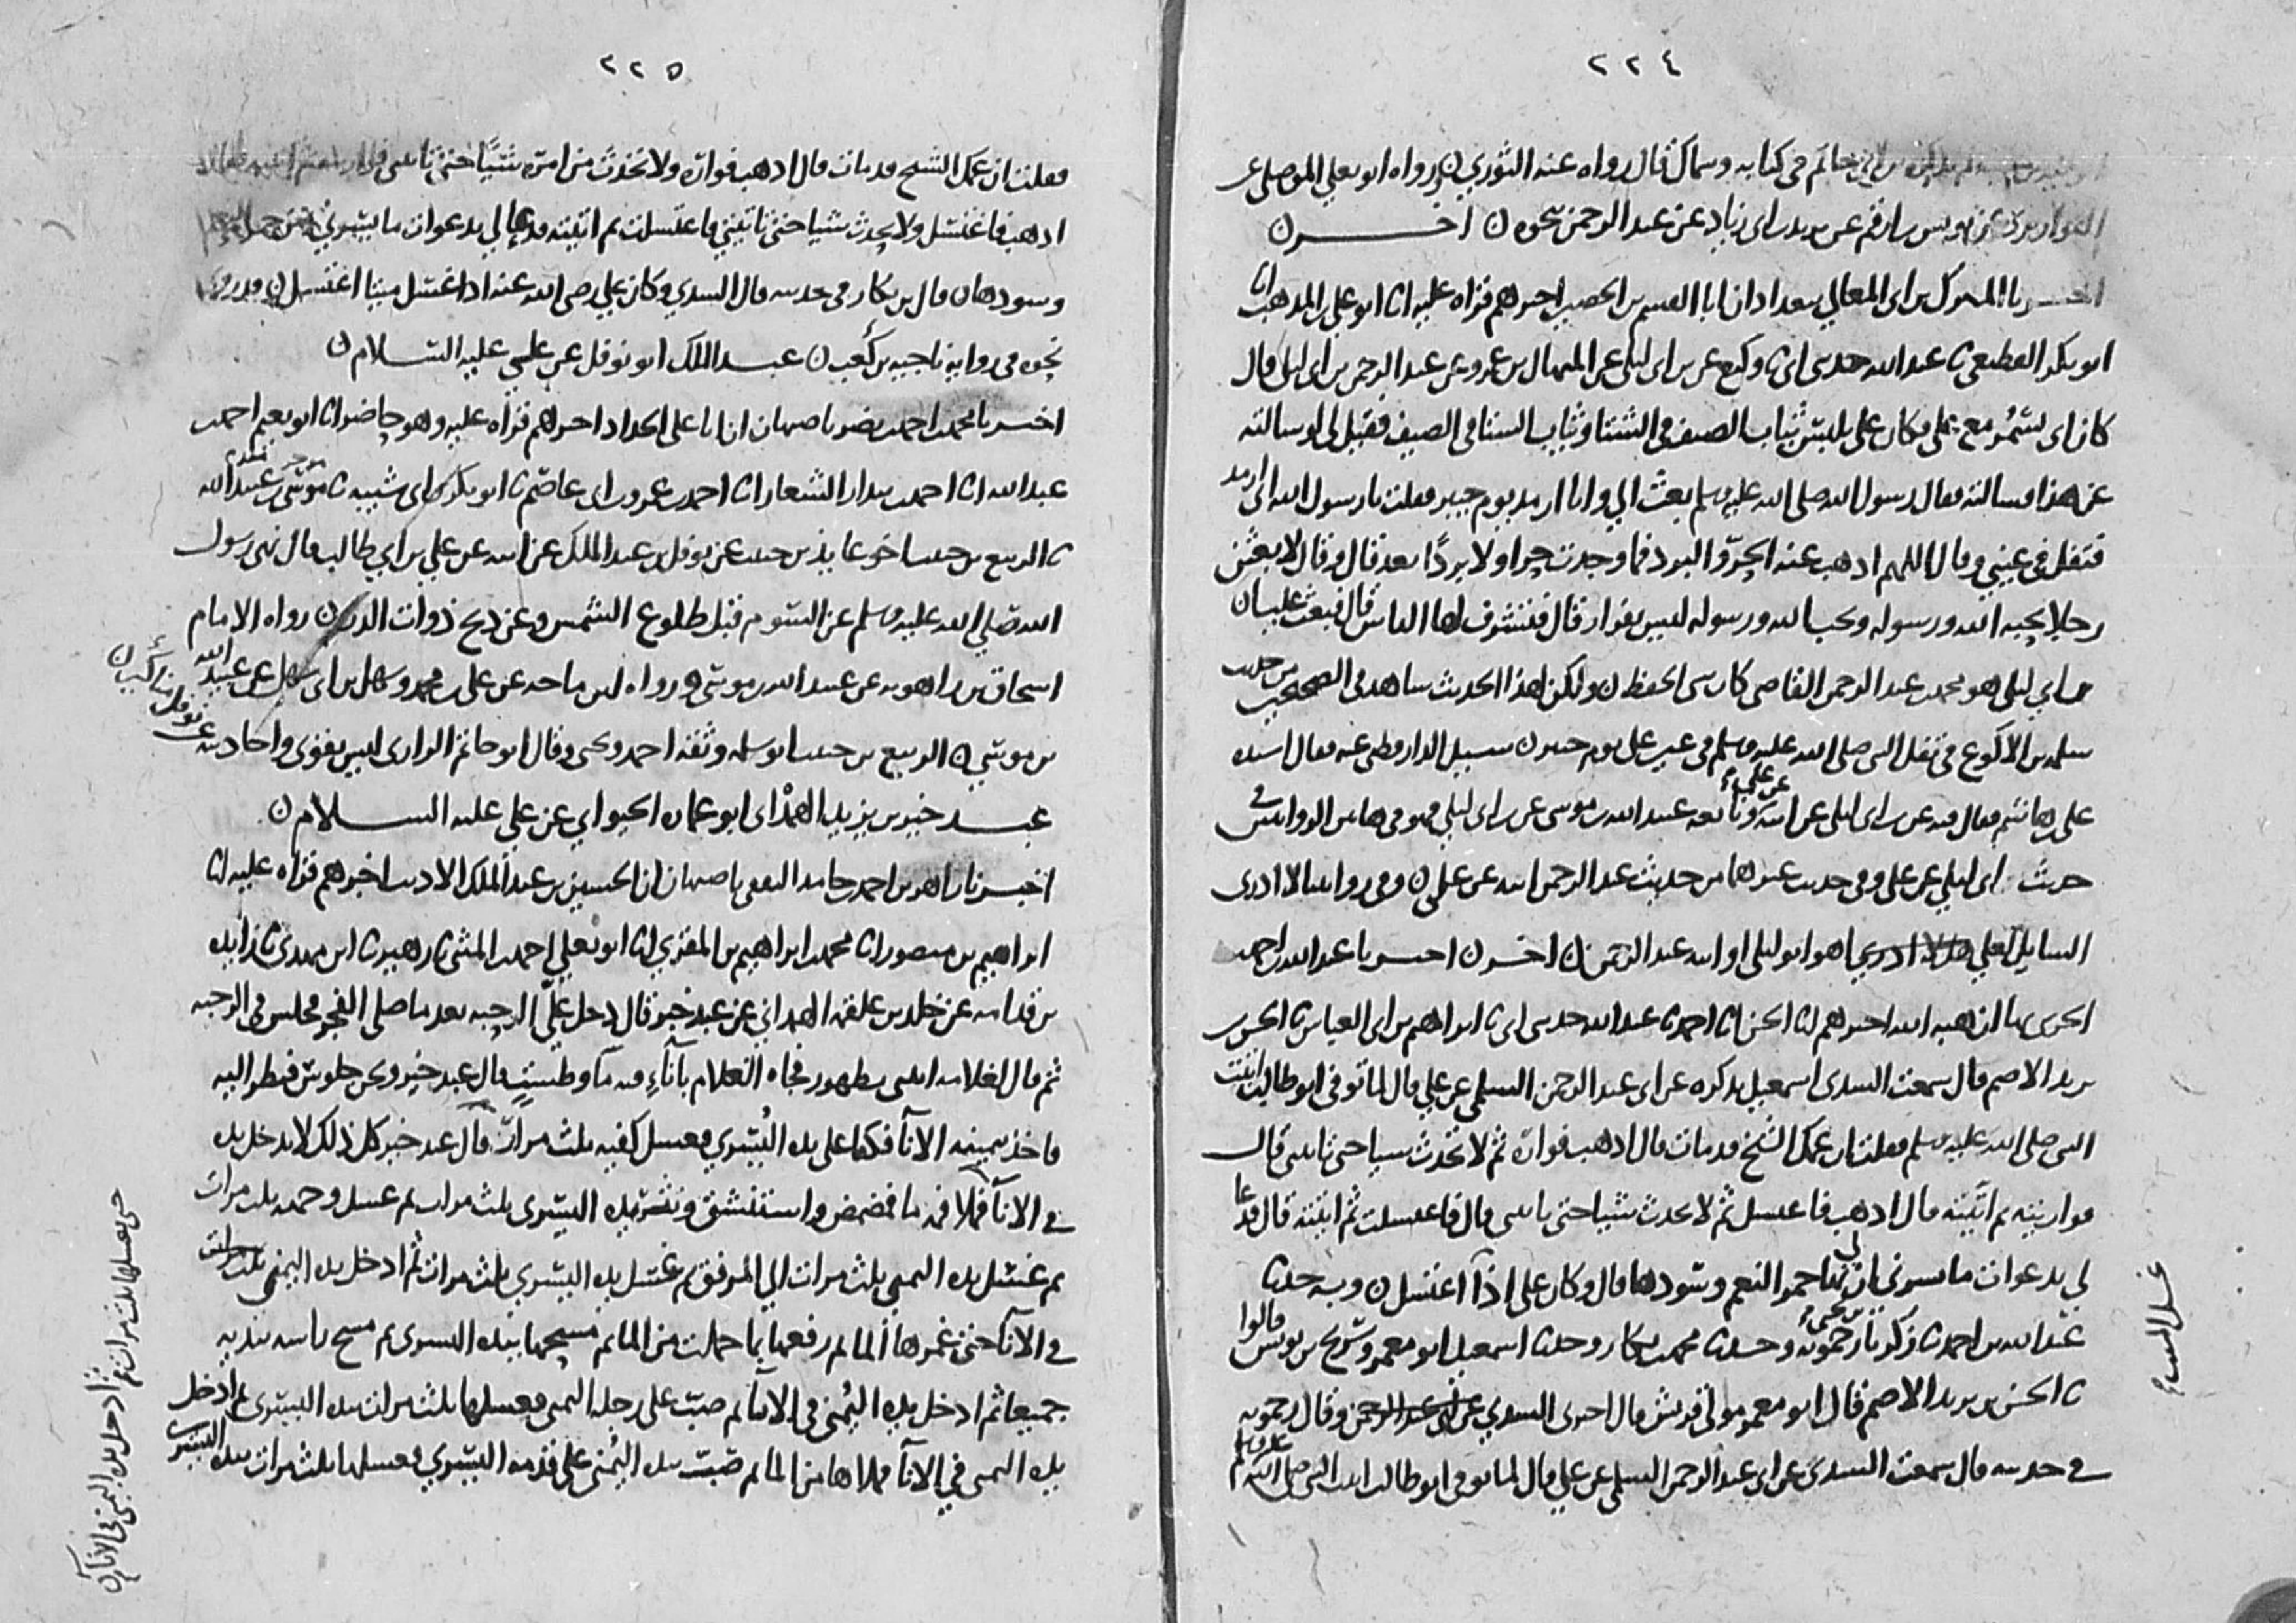 ٢٢٤
حاتم في كتابه وسماك قال رواه عنه الثوري ن ورواه ابو يعلي الموصلي عن
القواريري عن يونس بن ارقم عن يزيد بن ابي زياد عن عبد الرحمن نحوه ن اخـــر ن
اخـــبرنا المبارك بن ابي المعالي ببغداد ان ابا القسم بن الحصين اخبرهم قراه عليه انا ابو علي بن المذهب انا
ابو بكر القطيعي ثا عبد الله حدثني ابي ثا وكيع عن بن ابي ليلى عن المنهال بن عمرو عن عبد الرحمن بن ابي ليلى قال
كان ابي يسمُر مع علي وكان علي يلبس ثياب الصيف في الشتا وثياب الشتا في الصيف فقيل لي لو سالته
عن هذا فسالته فقال رسول الله صلى الله عليه وسلم بعث الي وانا ارمد يوم خيبر فقلت يا رسول الله اني ارمد
فتفل في عيني وقال اللهم اذهب عنه الحرّ والبرد فما وجدت حرا ولا بردًا بعد قال وقال لابعثن
رجلا يحبه الله ورسوله ويحب الله ورسوله ليس بفرار قال فتشرف لها الناس قال فبعث عليا ن
بن ابي ليلى هو محمد بن عبد الرحمن القاضي كان سيئ الحفظ ن ولكن لهذا الحديث شاهد في الصحيحين من حديث
سلمه بن الاكوع في تفل النبي صلى الله عليه وسلم في عين علي يوم خيبر ن سيل الدارقطني عنه فقال اسنده
علي بن هاشم فقال فيه عن بن ابي ليلى عن ابيه عن علي وتابعه عبيد الله بن موسى عن بن ابي ليلى فهو في هاتين الروايتين في
حديث ابي ليلي عن علي وفي حديث غيرهما من حديث عبد الرحمن ابنه عن علي ن وفي روايتنا لا ادري
السايل لعلي اهو ابو ليلى او ابنه عبد الرحمن ن اخـــر ن اخـــبرنا عبد الله بن احمد
الحربي بها ان هبه الله اخبرهم انا الحسن انا احمد ثا عبد الله حدثني ابي ثا ابراهيم بن ابي العباس ثا الحسن بن
يزيد الاصم قال سمعت السدي اسمعيل يذكره عن ابي عبد الرحمن السلمي عن علي قال لما توفي ابو طالب اتيت
النبي صلى الله عليه وسلم فقلت ان عمك الشيخ قد مات قال اذهب فواره ثم لا تحدث شيا حتى تاتيني قال
فواريته ثم اتيته قال اذهب فاغتسل ثم لا تحدث شيا حتى تاتيني قال فاغتسلت ثم اتيته قال فدعا
لي بدعوات ما يسرني ان لي بها حمر النعم وسودها قال وكان علي اذا اغتسل ن وبه حدثنا
عبد الله بن احمد ثا زكريا بن يحيى رحمويه وحدثنا محمد بن بكار وحدثنا اسمعيل ابو معمر وسريج بن يونس قالوا
ثا الحسن بن يزيد الاصم قال ابو معمر مولى قريش قال اخبرني السدي عن ابي عبد الرحمن وقال رحمويه
في حديثه قال سمعت السدي عن ابي عبد الرحمن السلمي عن علي قال لما توفي ابو طالب اتيت النبي صلى الله عليه وسلم
غسل الميت
٢٢٥
فقلت ان عمك الشيخ قد مات قال اذهب فواره ولا تحدث من امره شيئًا حتى تاتيني فواريته ثم اتيته فقال
اذهب فاغتسل ولا تحدث شيا حتى تاتيني فاغتسلت ثم اتيته فدعا لي بدعوات ما يسرني بهن حمر النعم
وسودها ن قال بن بكار في حديثه قال السدي وكان علي رضي الله عنه اذا غسل ميتا اغتسل ن وقد روي
نحوه في رواية ناجيه بن كعب ن عبـــد الملك ابو نوفل عن علي عليه الســـلام ن
اخـــبرنا محمد بن احمد بن نصر باصبهان ان ابا علي الحداد اخبرهم قراه عليه وهو حاضر انا ابو نعيم احمد بن
عبد الله انا احمد بن بندار الشعار انا احمد بن عمرو بن ابي عاصم ثا ابو بكر بن ابي شيبه ثا موسى بن عبيد الله
ثا الربيع بن حبيب اخو عايذ بن حبيب عن نوفل بن عبد الملك عن ابيه عن علي بن ابي طالب قال نهى رسول
الله صلى الله عليه وسلم عن السوم قبل طلوع الشمس وعن ذبح ذوات الدر ن رواه الامام
اسحاق بن راهويه عن عبيد الله بن موسى ن ورواه ابن ماجه عن علي بن محمد وسهل بن ابي سهل عن عبيد الله
بن موسى ن الربيع بن حبيب ابو سلمه وثقه احمد ويحيى وقال ابو حاتم الرازي ليس بقوي واحاديثه عن
نوفل مناكير ن
عبـــد خير بن يزيد الهمْداني ابو عماره الخيواني عن علي عليه الســـلام ن
اخـــبرنا زاهر بن احمد بن حامد الثقفي باصبهان ان الحسين بن عبد الملك الاديب اخبرهم قراه عليه انا
ابراهيم بن منصور انا محمد بن ابراهيم بن المقري انا ابو يعلي احمد بن المثنى ثا زهير ثا ابن مهدي ثا زايده
بن قدامه عن خلد بن علقمه الهمداني عن عبد خير قال دخل عليّ الرحبه بعد ما صلى الفجر فجلس في الرحبه
ثم قال لغلامه ايتني بطهور فجاه الغلام باناءٍ فيه مآ وطستٍ قال عبد خير ونحن جلوس ننظر اليه
فاخذ بيمينه الانآ فكفا على يده اليُسرى فغسل كفيه ثلث مرات قال عبد خير كل ذلك لا يدخل يده
في الانآ فملا فمه ما فمضمض واستنشق ونثر بيده اليسرى ثلث مرات ثم غسل وجهه ثلث مرات
ثم غسل يده اليمنى ثلث مرات الى المرفق ثم غسل يده اليسرى ثلث مرات ثم ادخل يده اليمنى
في الانآ حتى غمرها الما ثم رفعها بما حملت من الما ثم مسحها بيده اليسرى ثم مسح راسه بيديه
جميعا ثم ادخل يده اليُمنى في الانآ ثم صبّ على رجله اليمنى فغسلها ثلث مرات بيده اليسرى ثم ادخل
يده اليمنى في الانآ فملاها من الما ثم صبّ بيده اليُمنى على قدمه اليسرى فغسلها ثلث مرات بيده اليسرى